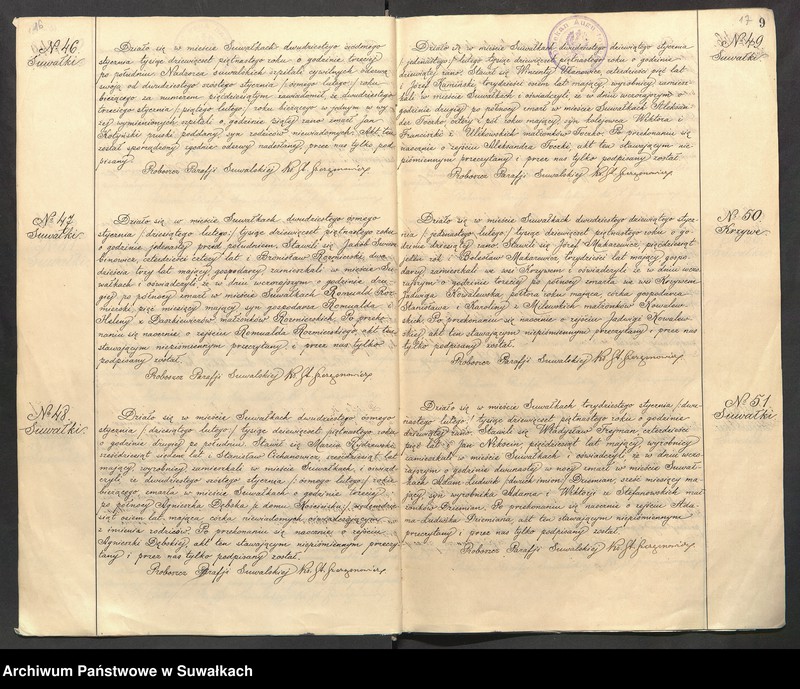 16
No 46.
Suwałki.
Działo się w mieście Suwałkach dwudziestego siódmego
stycznia tysiąc dziewięćset piętnastego roku o godzinie trzeciej
po południu. Nadzorca Suwalskich szpitali cywilnych odezwą
swoją od dwudziestego szóstego stycznia /ósmego lutego/ roku
bieżącego za numerem pięćdziesiątym zawiadomił, iż dwudziestego
trzeciego stycznia /piątego lutego/ roku bieżącego w jednym z wy
żej wymienionych szpitali o godzinie piątej rano zmarł Jan
pruski poddany, syn rodziców niewiadomych. Akt ten
został sporządzony zgodnie odezwy nadesłanej, przez nas tylko pod
pisany.
Proboszcz Parafji Suwalskiej Ks. St.
No 47.
Suwałki.
Działo się w mieście Suwałkach dwudziestego ósmego
stycznia /dziesiątego lutego/ tysiąc dziewięćset piętnastego roku
o godzinie jedenastej przed południem. Stawili się Jakób
czterdzieści cztery lat i Bronisław dwa
dzieścia trzy lat mający, gospodarze zamieszkali w mieście Su
wałkach i oświadczyli, że w dniu wczorajszym o godzinie dru
giej po północy zmarł w mieście Suwałkach Romuald
pięć miesięcy mający, syn gospodarza Romualda i
Heleny z małżonków Po przeko
naniu się naocznie o zejściu Romualda akt ten
stawającym niepiśmiennym przeczytany i przez nas tylko
podpisany został.
Proboszcz Parafji Suwalskiej Ks. St.
No 48.
Suwałki.
Działo się w mieście Suwałkach dwudziestego ósmego
stycznia /dziesiątego lutego/ tysiąc dziewięćset piętnastego roku
o godzinie drugiej po południu. Stawił się Marcin
sześćdziesiąt siedem lat i Stanisław Cichanowicz, sześćdziesiąt lat
mający, wyrobnicy zamieszkali w mieście Suwałkach, i oświad
czyli, że dwudziestego szóstego stycznia /ósmego lutego/ roku
bieżącego zmarła w mieście Suwałkach o godzinie trzeciej
po północy Agnieszka Dębska z domu
siąt osiem lat mająca, córka niewiadomych
z imienia rodziców. Po przekonaniu się naocznie o zejściu
Agnieszki Dębskiej, akt ten stawającym niepiśmiennym przeczy
tany i przez nas tylko podpisany został.
Proboszcz Parafji Suwalskiej Ks. St.
17 9
No 49.
Suwałki.
Działo się w mieście Suwałkach dwudziestego dziewiątego stycznia
/jedenastego/ lutego/ tysiąc dziewięćset piętnastego roku o godzinie
dziewiątej rano. Stawił się Wincenty czterdzieści pięć lat
i Józef Kamiński, trzydzieści osiem lat mający, wyrobnicy zamiesz
kali w mieście Suwałkach i oświadczyli, że w dniu wczorajszym o
godzinie drugiej po północy zmarł w mieście Suwałkach Aleksan
der Toczko, cztery i pół roku mający, syn kolejowca Wiktora i
Franciszki z małżonków Toczko. Po przekonaniu się
naocznie o zejściu Aleksandra Toczki, akt ten stawającym nie
piśmiennym przeczytany i przez nas tylko podpisany został.
Proboszcz Parafji Suwalskiej Ks. St.
No 50.
Krzywe.
Działo się w mieście Suwałkach dwudziestego dziewiątego stycz
nia /jedenastego lutego/ tysiąc dziewięćset piętnastego roku o go
dzinie dziesiątej rano. Stawili się Józef Makarewicz, pięćdziesiąt
jeden rok i Bolesław Makarewicz trzydzieści lat mający, gospo
darze zamieszkali we wsi Krzywem i oświadczyli, że w dniu wczo
rajszym o godzinie trzeciej po północy zmarła we wsi Krzywem
Jadwiga Kowalewska, półtora roku mająca, córka gospodarza
Stanisława i Karoliny z małżonków Kowalew
skich. Po przekonaniu się naocznie o zejściu Jadwigi Kowalew
skiej akt ten stawającym niepiśmiennym przeczytany i przez nas
tylko podpisany został.
Proboszcz Parafji Suwalskiej Ks. St.
No 51.
Suwałki.
Działo się w mieście Suwałkach trzydziestego stycznia /dwu
nastego lutego/ tysiąc dziewięćset piętnastego roku o godzinie
dziewiątej rano. Stawili się Władysław czterdzieści
pięć lat i Jan pięćdziesiąt lat mający, wyrobnicy
zamieszkali w mieście Suwałkach i oświadczyli, że w dniu wczo
rajszym o godzinie dwunastej w nocy zmarł w mieście Suwał
kach Adam Ludwik /dwóch imion/ sześć miesięcy ma
jący, syn wyrobnika Adama i Wiktorji ze Stefanowskich mał
żonków Po przekonaniu się naocznie o zejściu Ada
ma Ludwika akt ten stawającym niepiśmiennym
przeczytany i przez nas tylko podpisany został.
Proboszcz Parafji Suwalskiej Ks. St.
Archiwum Państwowe w Suwałkach